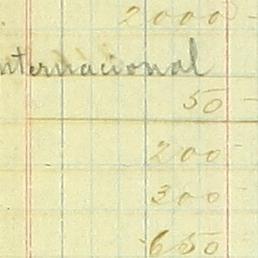 2000-
nternacional
50-
200-
300-
650